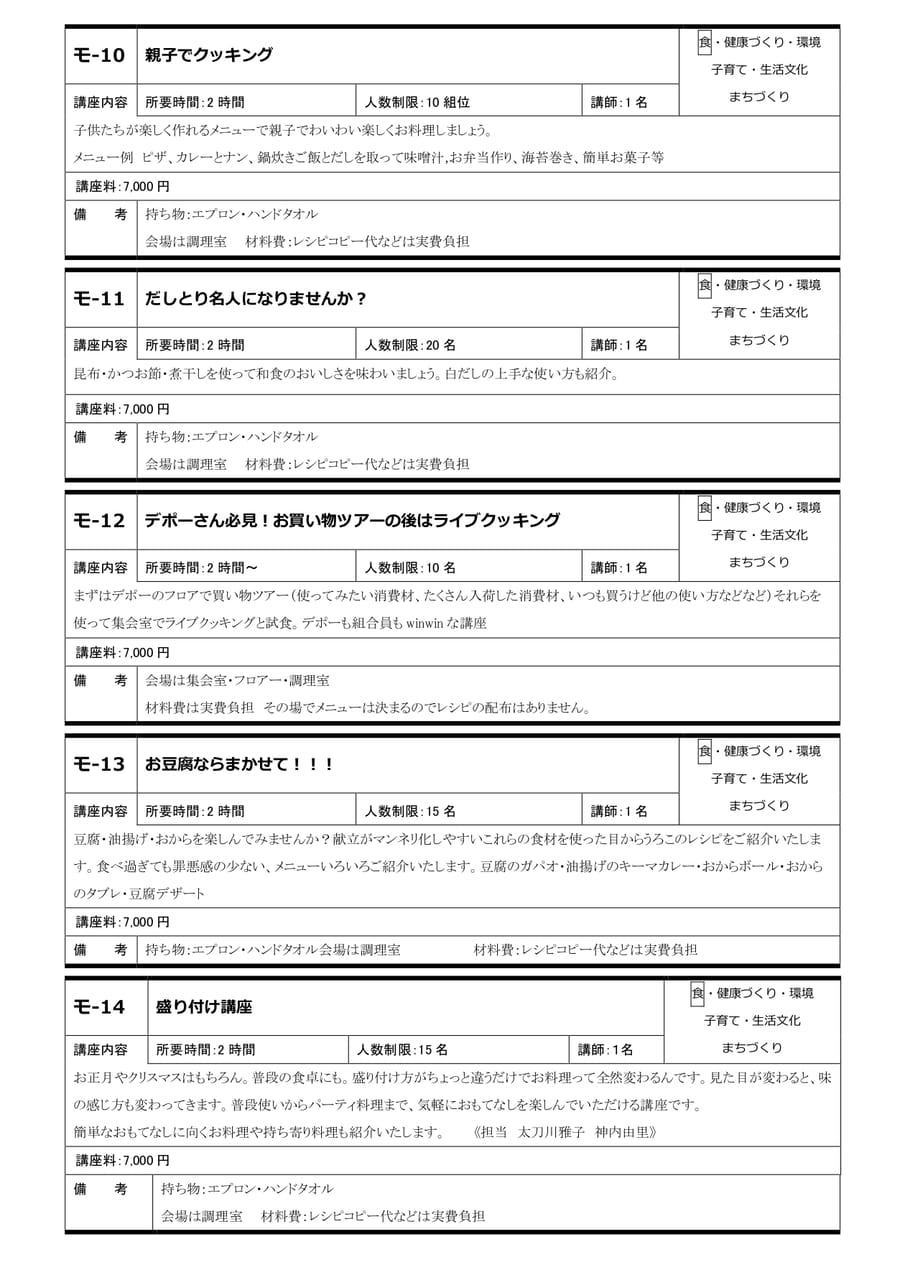 モ-10 親子でクッキング 食・健康づくり・環境
子育て・生活文化
まちづくり
講座内容 所要時間：2 時間 人数制限：10 組位 講師：1 名
子供たちが楽しく作れるメニューで親子でわいわい楽しくお料理しましょう。
メニュー例 ピザ、カレーとナン、鍋炊きご飯とだしを取って味噌汁,お弁当作り、海苔巻き、簡単お菓子等
講座料：7,000 円
備　考 持ち物：エプロン・ハンドタオル
会場は調理室　材料費：レシピコピー代などは実費負担
モ-11 だしとり名人になりませんか？ 食・健康づくり・環境
子育て・生活文化
まちづくり
講座内容 所要時間：2 時間 人数制限：20 名 講師：1 名
昆布・かつお節・煮干しを使って和食のおいしさを味わいましょう。白だしの上手な使い方も紹介。
講座料：7,000 円
備　考 持ち物：エプロン・ハンドタオル
会場は調理室　材料費：レシピコピー代などは実費負担
モ-12 デポーさん必見！お買い物ツアーの後はライブクッキング 食・健康づくり・環境
子育て・生活文化
まちづくり
講座内容 所要時間：2 時間～ 人数制限：10 名 講師：1 名
まずはデポーのフロアで買い物ツアー（使ってみたい消費材、たくさん入荷した消費材、いつも買うけど他の使い方などなど）それらを
使って集会室でライブクッキングと試食。デポーも組合員も winwin な講座
講座料：7,000 円
備　考 会場は集会室・フロアー・調理室
材料費は実費負担　その場でメニューは決まるのでレシピの配布はありません。
モ-13 お豆腐ならまかせて！！！ 食・健康づくり・環境
子育て・生活文化
まちづくり
講座内容 所要時間：2 時間 人数制限：15 名 講師：1 名
豆腐・油揚げ・おからを楽しんでみませんか？献立がマンネリ化しやすいこれらの食材を使った目からうろこのレシピをご紹介いたしま
す。食べ過ぎても罪悪感の少ない、メニューいろいろご紹介いたします。豆腐のガパオ・油揚げのキーマカレー・おからボール・おから
のタブレ・豆腐デザート
講座料：7,000 円
備　考 持ち物：エプロン・ハンドタオル会場は調理室　材料費：レシピコピー代などは実費負担
モ-14 盛り付け講座 食・健康づくり・環境
子育て・生活文化
まちづくり
講座内容 所要時間：2 時間 人数制限：15 名 講師：1名
お正月やクリスマスはもちろん。普段の食卓にも。盛り付け方がちょっと違うだけでお料理って全然変わるんです。見た目が変わると、味
の感じ方も変わってきます。普段使いからパーティ料理まで、気軽におもてなしを楽しんでいただける講座です。
簡単なおもてなしに向くお料理や持ち寄り料理も紹介いたします。　《担当　太刀川雅子　神内由里》
講座料：7,000 円
備　考 持ち物：エプロン・ハンドタオル
会場は調理室　材料費：レシピコピー代などは実費負担